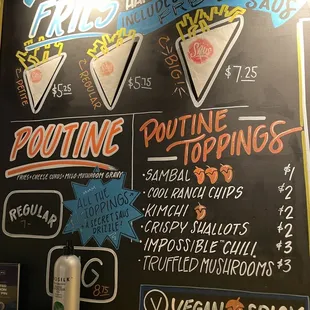 FRIES
INCLUDES
SAUS
PETITE
$5.25
REGULAR
$5.75
BIG!
$7.25
POUTINE
FRIES + CHEESE CURDS + MISO MUSHROOM GRAVY
ALL THE
TOPPINGS
+ A SECRET SAUS
DRIZZLE!
REGULAR
8.75
POUTINE
TOPPINGS
• SAMBAL $1
• COOL RANCH CHIPS $2
• KIMCHI $2
• CRISPY SHALLOTS $2
• IMPOSSIBLE™ CHILI $3
• TRUFFLED MUSHROOMS $3
V VEGAN SPICY